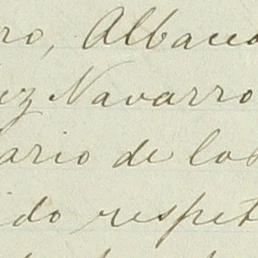 ro, Albace
ez Navarro
ario de los
ido respet